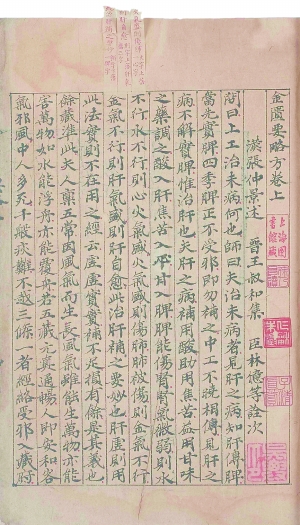 金匱要略方卷上
漢張仲景述　晉王叔和集　臣林億等詮次
問曰上工治未病何也師曰夫治未病者見肝之病知肝傳脾
當先實脾四季脾王不受邪即勿補之中工不曉相傳見肝之
病不解實脾惟治肝也夫肝之病補用酸助用焦苦益用甘味
之藥調之酸入肝焦苦入心甘入脾脾能傷腎腎氣微弱則水
不行水不行則心火氣盛則傷肺肺被傷則金氣不行
金氣不行則肝氣盛則肝自愈此治肝補脾之要妙也肝虛則用
此法實則不在用之經云虛虛實實補不足損有餘是其義也
餘藏準此夫人稟五常因風氣而生長風氣雖能生萬物亦能
害萬物如水能浮舟亦能覆舟若五藏元真通暢人即安和客
氣邪風中人多死千般疢難不越三條一者經絡受邪入藏府
上海圖書館藏